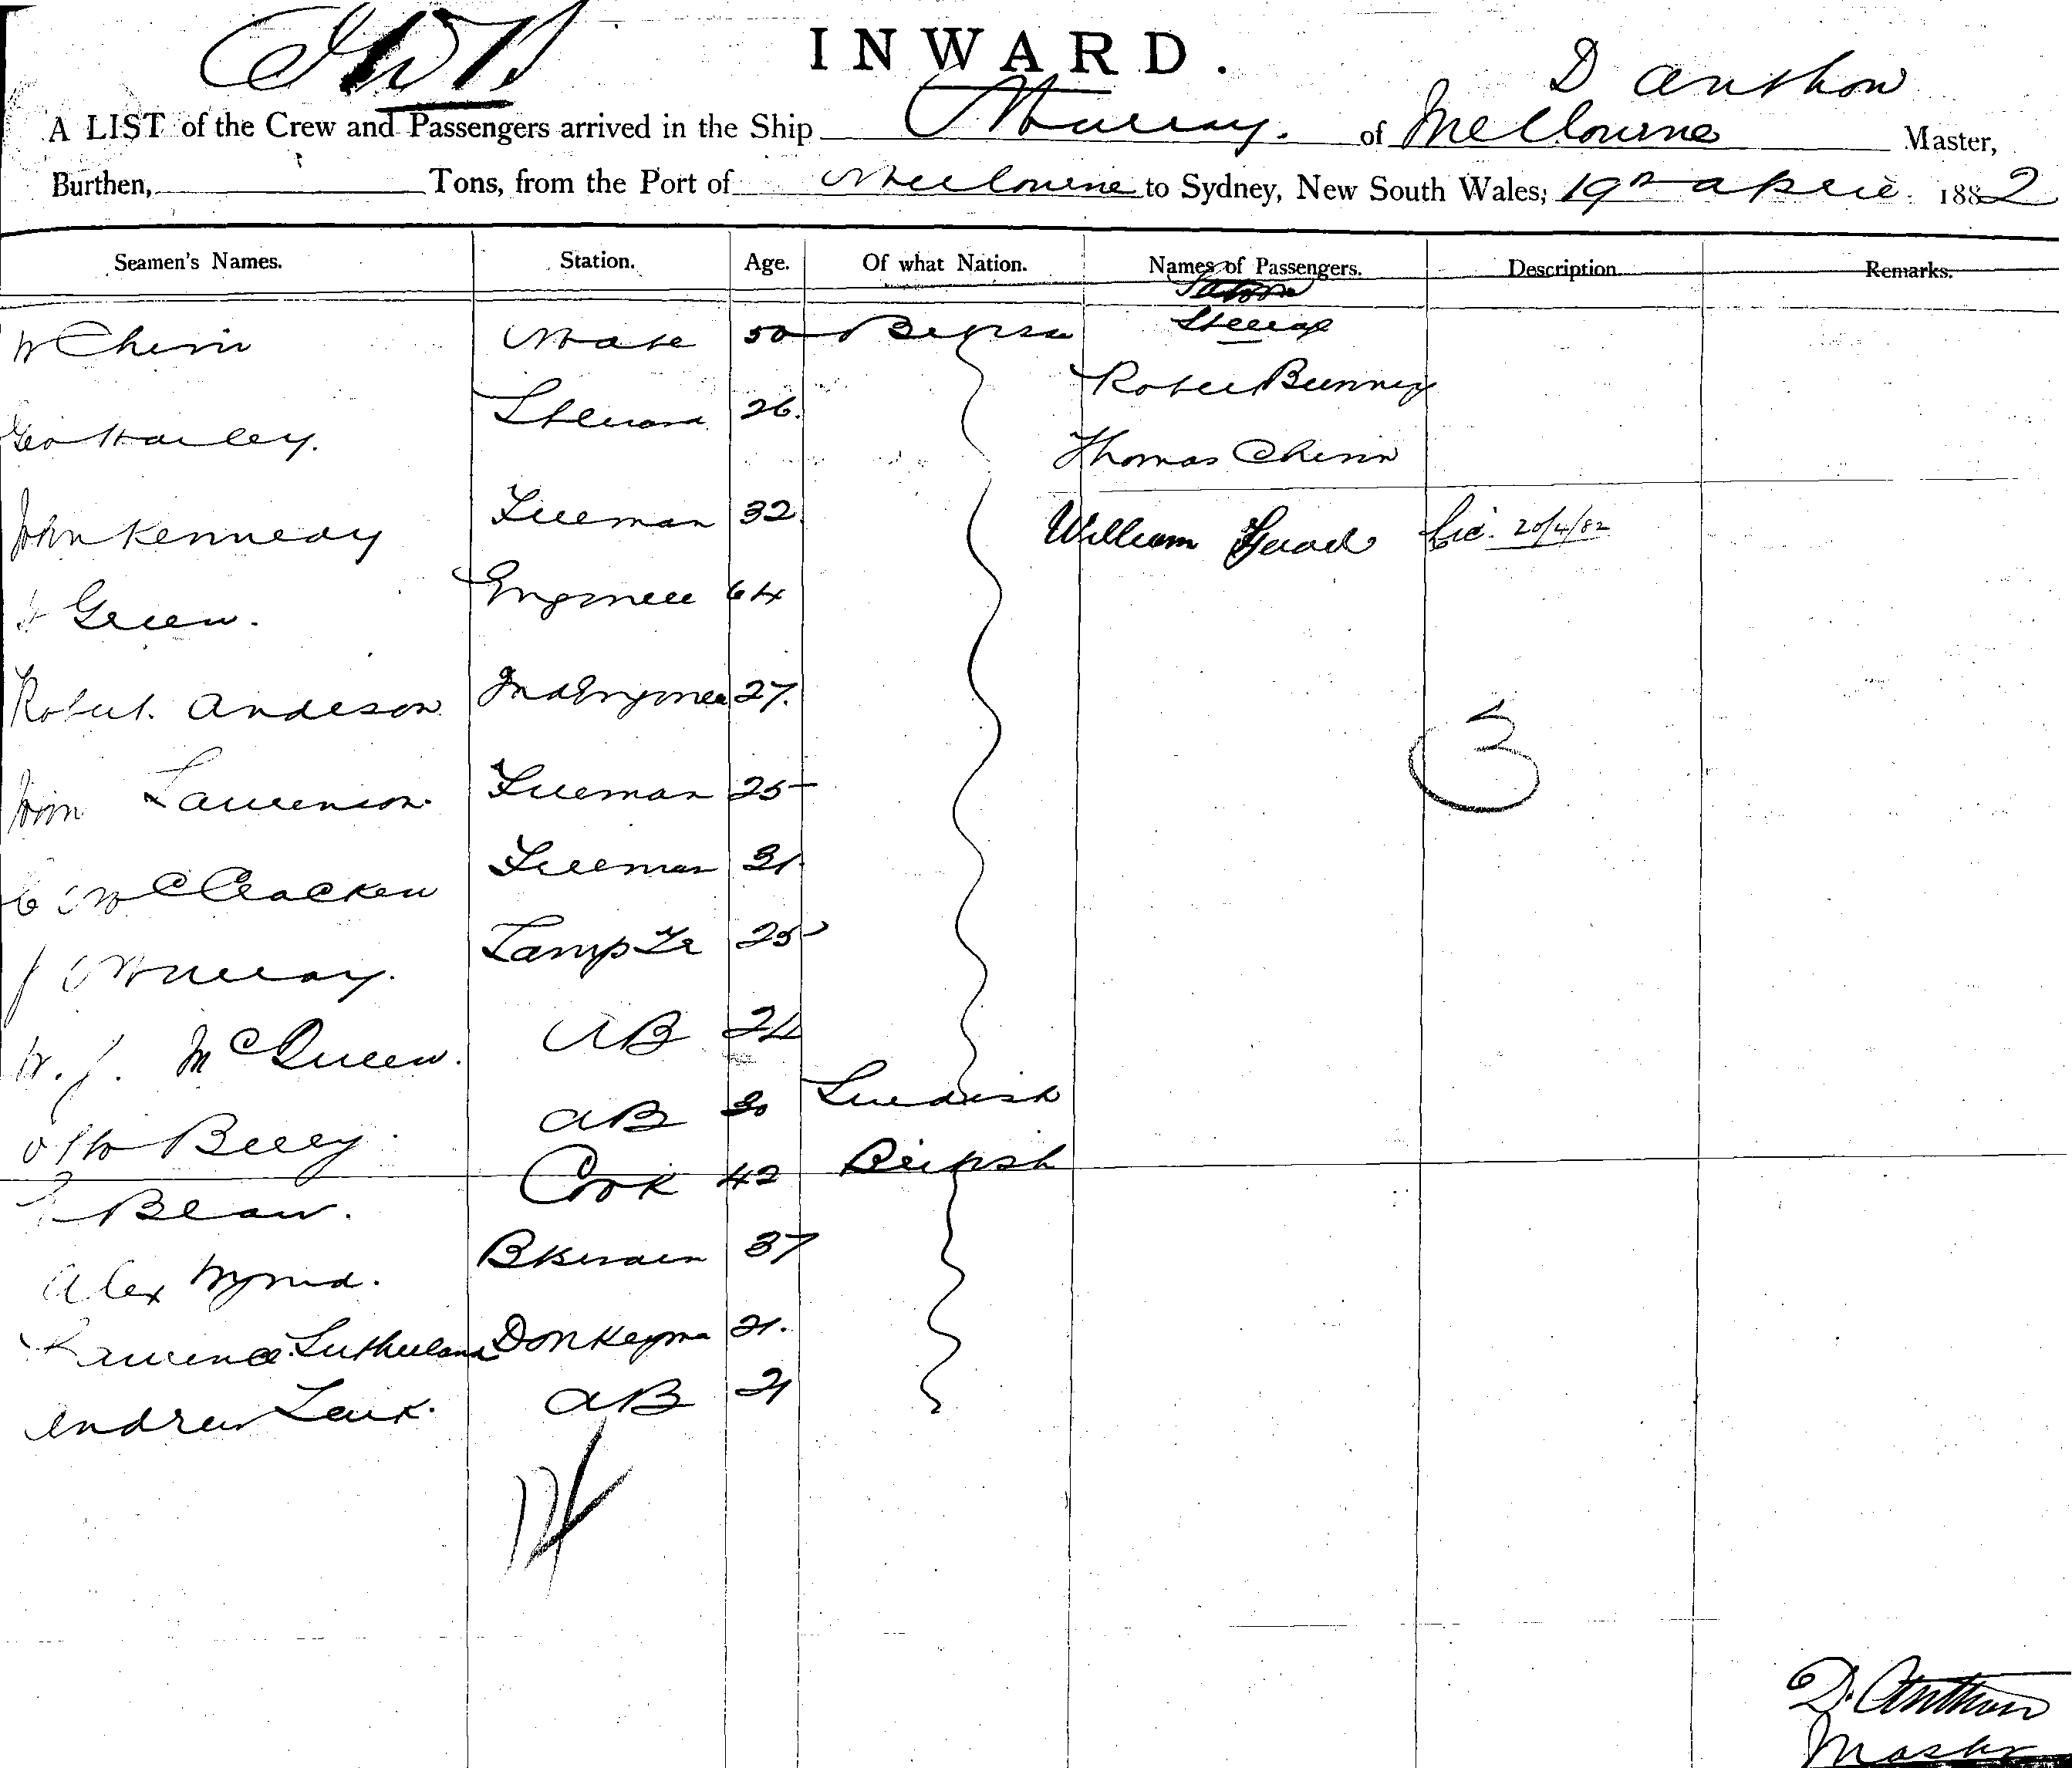 INWARD.
D Anthon
A LIST of the Crew and Passengers arrived in the Ship Murray. of Melbourne Master,
Burthen, Tons, from the Port of Melbourne to Sydney, New South Wales; 19th April 1882
Seamen's Names. Station. Age. Of what Nation. Names of Passengers. Description Remarks.
W Chirin Mate 50 British Steerage
Robert Bunney
Geo Harley. Steward 26.
Thomas Chirin
John Kennedy Fireman 32
William Lic. 20/4/82
Green. Engineer 64
Robert Anderson 2nd Engineer 27.
3
John Laurenson. Fireman 25
McCracken Fireman 31
J Murray. Lamp Tr 25
W. J. McQueen. AB 24
Otto Berry. AB 30 Swedish
Bean. Cook 42 British
Alex 37
Laurence Sutherland Donkeyma 21.
Andrew Leask. AB 21
14
D. Anthon
Master